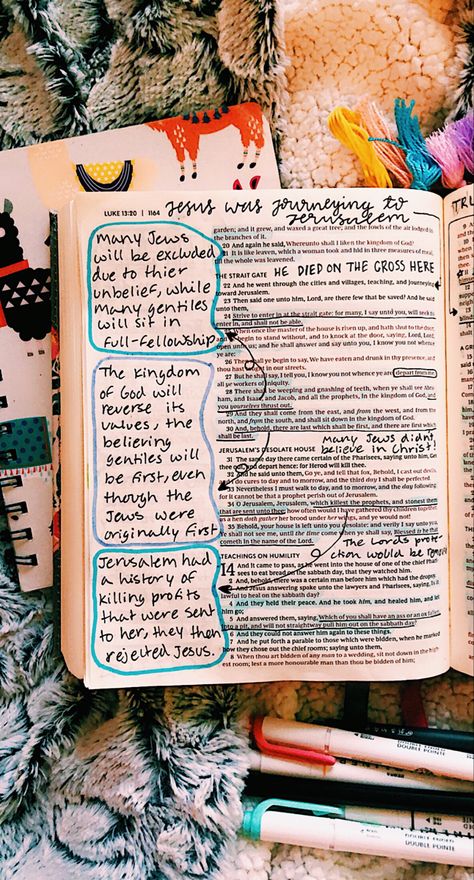 LUKE 13:20 | 1164
Jesus was journeying to
Jerusalem
garden; and it grew, and waxed a great tree; and the fowls of the air lodged in
the branches of it.
20 And again he said, Whereunto shall I liken the kingdom of God?
21 It is like leaven, which a woman took and hid in three measures of meal,
till the whole was leavened.
THE STRAIT GATE
HE DIED ON THE CROSS HERE
22 And he went through the cities and villages, teaching, and journeying
toward Jerusalem.
23 Then said one unto him, Lord, are there few that be saved? And he said
unto them,
24 Strive to enter in at the strait gate: for many, I say unto you, will seek to
enter in, and shall not be able.
When once the master of the house is risen up, and hath shut to the door,
begin to stand without, and to knock at the door, saying, Lord, Lord,
open unto us; and he shall answer and say unto you, I know you not whence
ye are:
26 Then shall ye begin to say, We have eaten and drunk in thy presence, and
thou hast
27 But he shall say, I tell you, I know you not whence ye are; depart from me,
all ye workers of iniquity.
28 There shall be weeping and gnashing of teeth, when ye shall see Abra-
ham, and Isaac, and Jacob, and all the prophets, in the kingdom of God, and
you yourselves thrust out.
29 And they shall come from the east, and from the west, and from the
north, and from the south, and shall sit down in the kingdom of God.
30 And, behold, there are last which shall be first, and there are first which
shall be last.
many Jews didn't
believe in Christ!
JERUSALEM'S DESOLATE HOUSE
31 The same day there came certain of the Pharisees, saying unto him, Get
thee out, and depart hence: for Herod will kill thee.
32 And he said unto them, Go ye, and tell that fox, Behold, I cast out devils,
and I do cures to day and to morrow, and the third day I shall be perfected.
33 Nevertheless I must walk to day, and to morrow, and the day following:
for it cannot be that a prophet perish out of Jerusalem.
34 O Jerusalem, Jerusalem, which killest the prophets, and stonest them
that are sent unto thee; how often would I have gathered thy children together,
as a hen doth gather her brood under her wings, and ye would not!
35 Behold, your house is left unto you desolate: and verily I say unto you,
Ye shall not see me, until the time come when ye shall say, Blessed is he that
cometh in the name of the Lord.
The Lords prote-
ction would be
TEACHINGS ON HUMILITY
14 And it came to pass, as he went into the house of one of the chief Phari-
sees to eat bread on the sabbath day, that they watched him.
2 And, behold, there was a certain man before him which had the dropsy.
3 And Jesus answering spake unto the lawyers and Pharisees, saying, Is it
lawful to heal on the sabbath day?
4 And they held their peace. And he took him, and healed him, and let
him go;
5 And answered them, saying, Which of you shall have an ass or an ox fallen
into a pit, and will not straightway pull him out on the sabbath day?
6 And they could not answer him again to these things.
7 And he put forth a parable to those which were bidden, when he marked
how they chose out the chief rooms; saying unto them,
8 When thou art bidden of any man to a wedding, sit not down in the high-
est room; lest a more honourable man than thou be bidden of him;
many Jews
will be excluded
due to thier
unbelief, while
many gentiles
will sit in
full-fellowship
The kingdom
of God will
reverse its
values, the
believing
gentiles will
be first, even
though the
Jews were
originally first
Jerusalem had
a history of
killing profits
that were sent
to her, they then
rejected Jesus.
DOUBLE POINTE
DOUBLE POINTE